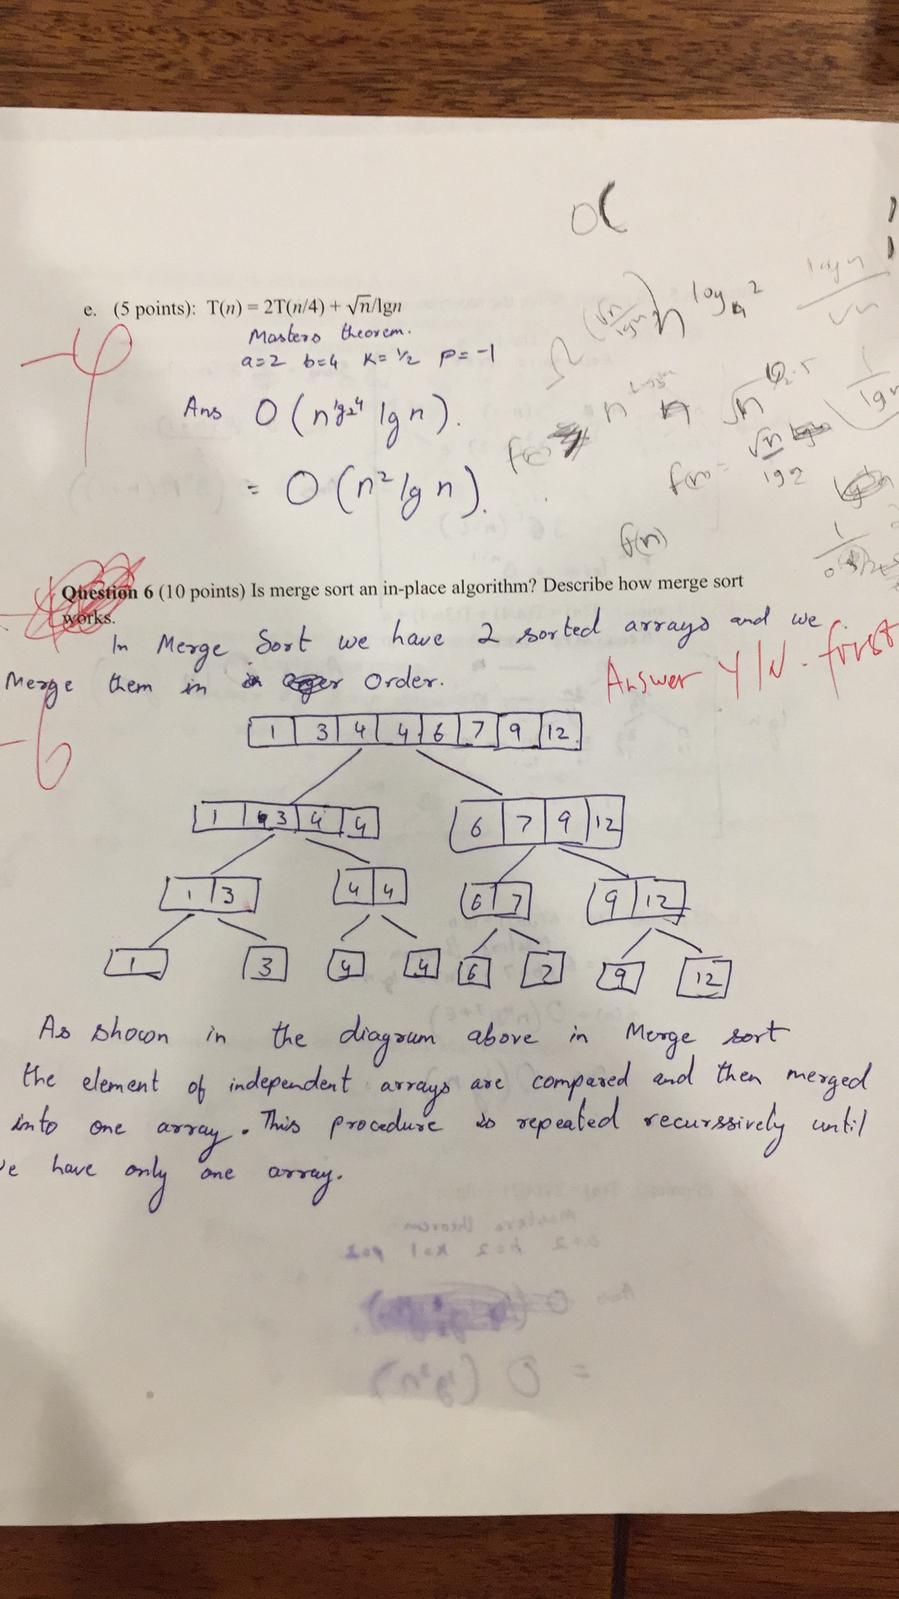 O(
e. (5 points): T(n) = 2T(n/4) + √n/lgn
-4
Masters theorem.
a=2 b=4 K=½ P=-1
Ans O(n^lg24 lg n).
= O(n² lg n).
Ω(√n/lgn) n^log4 2
log n/√n
f(n) = √n/lg2
f(n)
Question 6 (10 points) Is merge sort an in-place algorithm? Describe how merge sort
works.
In Merge Sort we have 2 sorted arrays and we
Merge them in order.
Answer Y/N. first
-6
1 3 4 4 6 7 9 12
1 3 4 4 6 7 9 12
1 3 4 4 6 7 9 12
1 3 4 4 6 7 9 12
As shown in the diagram above in Merge sort
the element of independent arrays are compared and then merged
into one array. This procedure is repeated recurssively until
we have only one array.